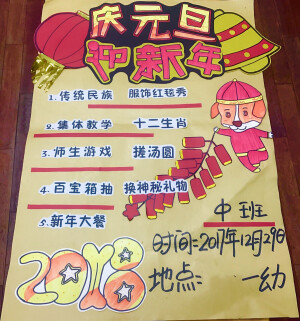 庆元旦
迎新年
1.传统民族 服饰红毯秀
2.集体教学 十二生肖
3.师生游戏 搓汤圆
4.百宝箱抽 换神秘礼物
5.新年大餐
中班
时间:2017年12月29日
地点: 一幼
2018